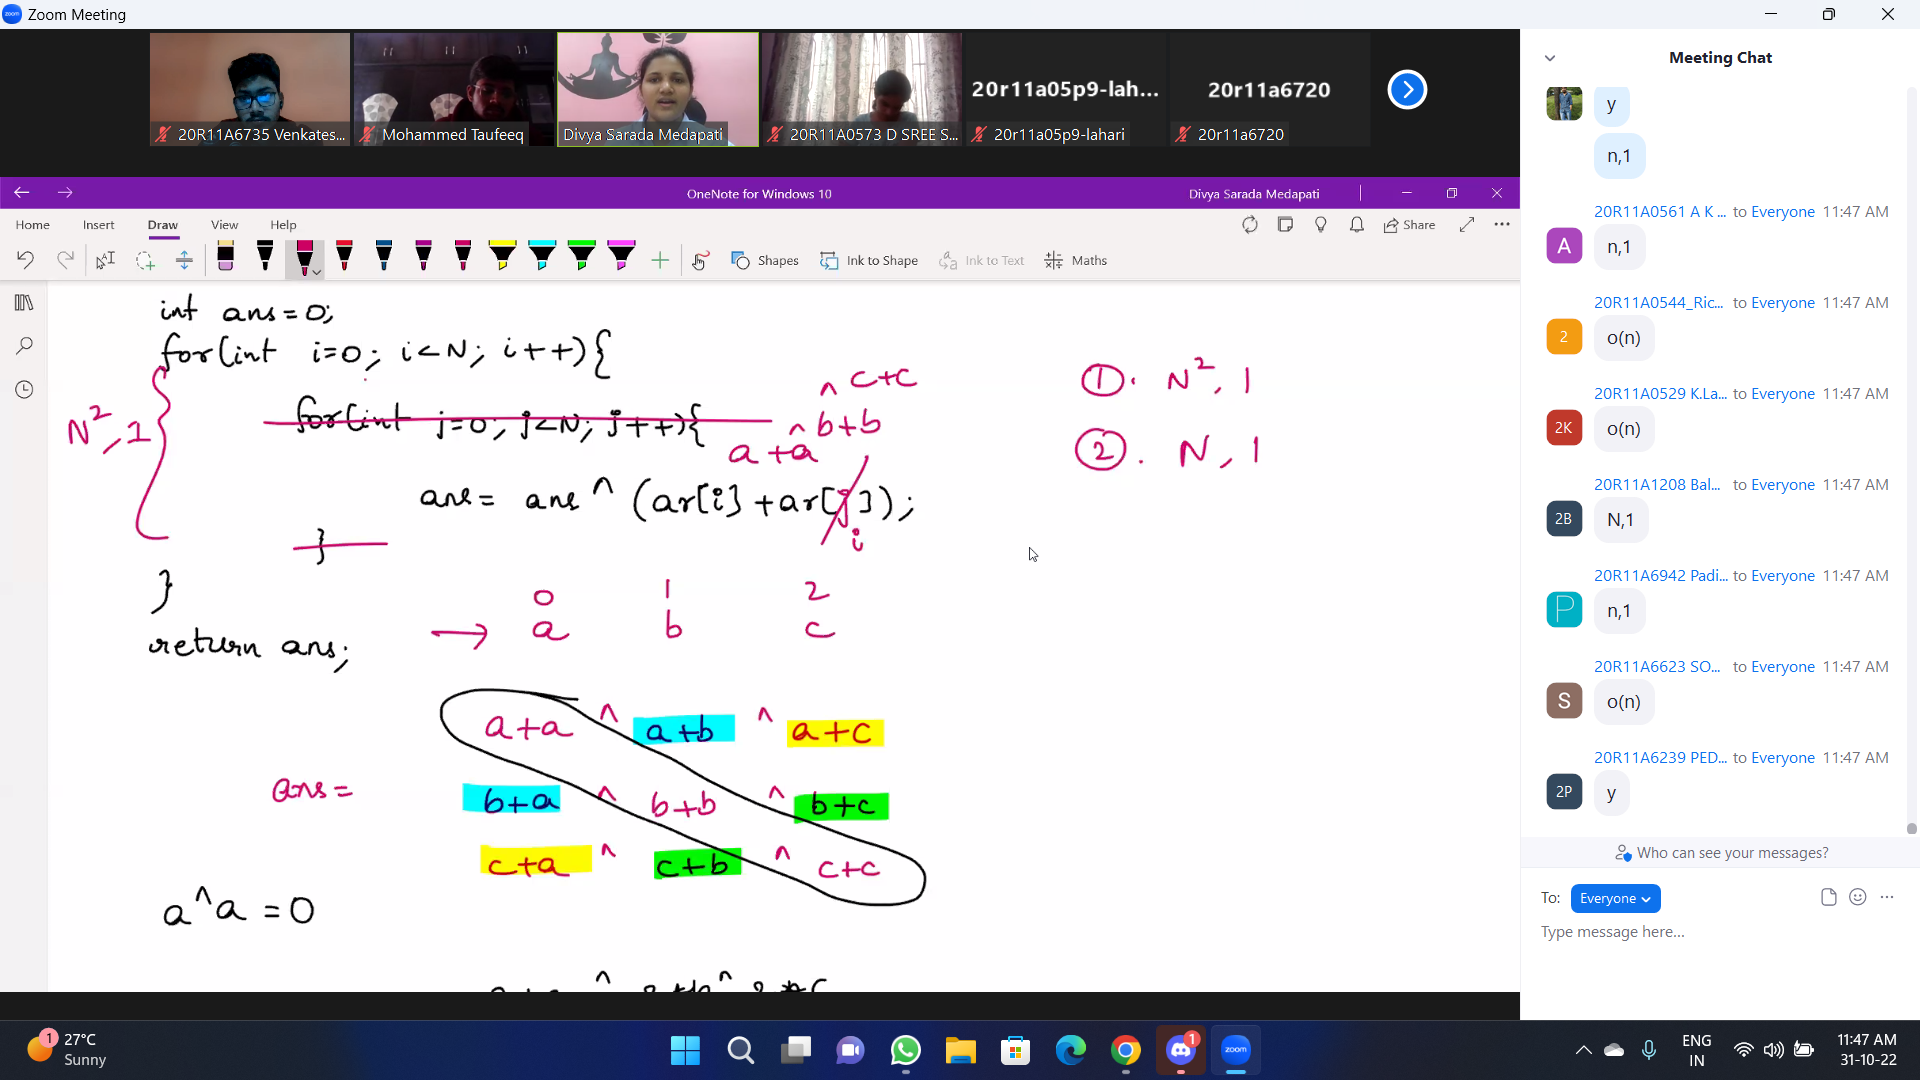 Zoom Meeting
20R11A6735 Venkates...
Mohammed Taufeeq
Divya Sarada Medapati
20R11A0573 D SREE S...
20r11a05p9-lah...
20r11a05p9-lahari
20r11a6720
20r11a6720
OneNote for Windows 10
Divya Sarada Medapati
Home Insert Draw View Help
Share
Shapes Ink to Shape Ink to Text Maths
int ans=0;
for(int i=0; i<N; i++){
N², 1
for(int j=0; j<N; j++){
^ c+c
^ b+b
a+a
ans= ans ^ (ar[i]+ar[j]);
i
}
}
return ans;
① . N², 1
② . N, 1
0 1 2
→ a b c
a+a ^ a+b ^ a+c
ans = b+a ^ b+b ^ b+c
c+a ^ c+b ^ c+c
a^a = 0
Meeting Chat
y
n,1
20R11A0561 A K ... to Everyone 11:47 AM
A
n,1
20R11A0544_Ric... to Everyone 11:47 AM
2
o(n)
20R11A0529 K.La... to Everyone 11:47 AM
2K
o(n)
20R11A1208 Bal... to Everyone 11:47 AM
2B
N,1
20R11A6942 Padi... to Everyone 11:47 AM
P
n,1
20R11A6623 SO... to Everyone 11:47 AM
S
o(n)
20R11A6239 PED... to Everyone 11:47 AM
2P
y
Who can see your messages?
To: Everyone
Type message here...
1
27°C
Sunny
1
zoom
ENG
IN
11:47 AM
31-10-22